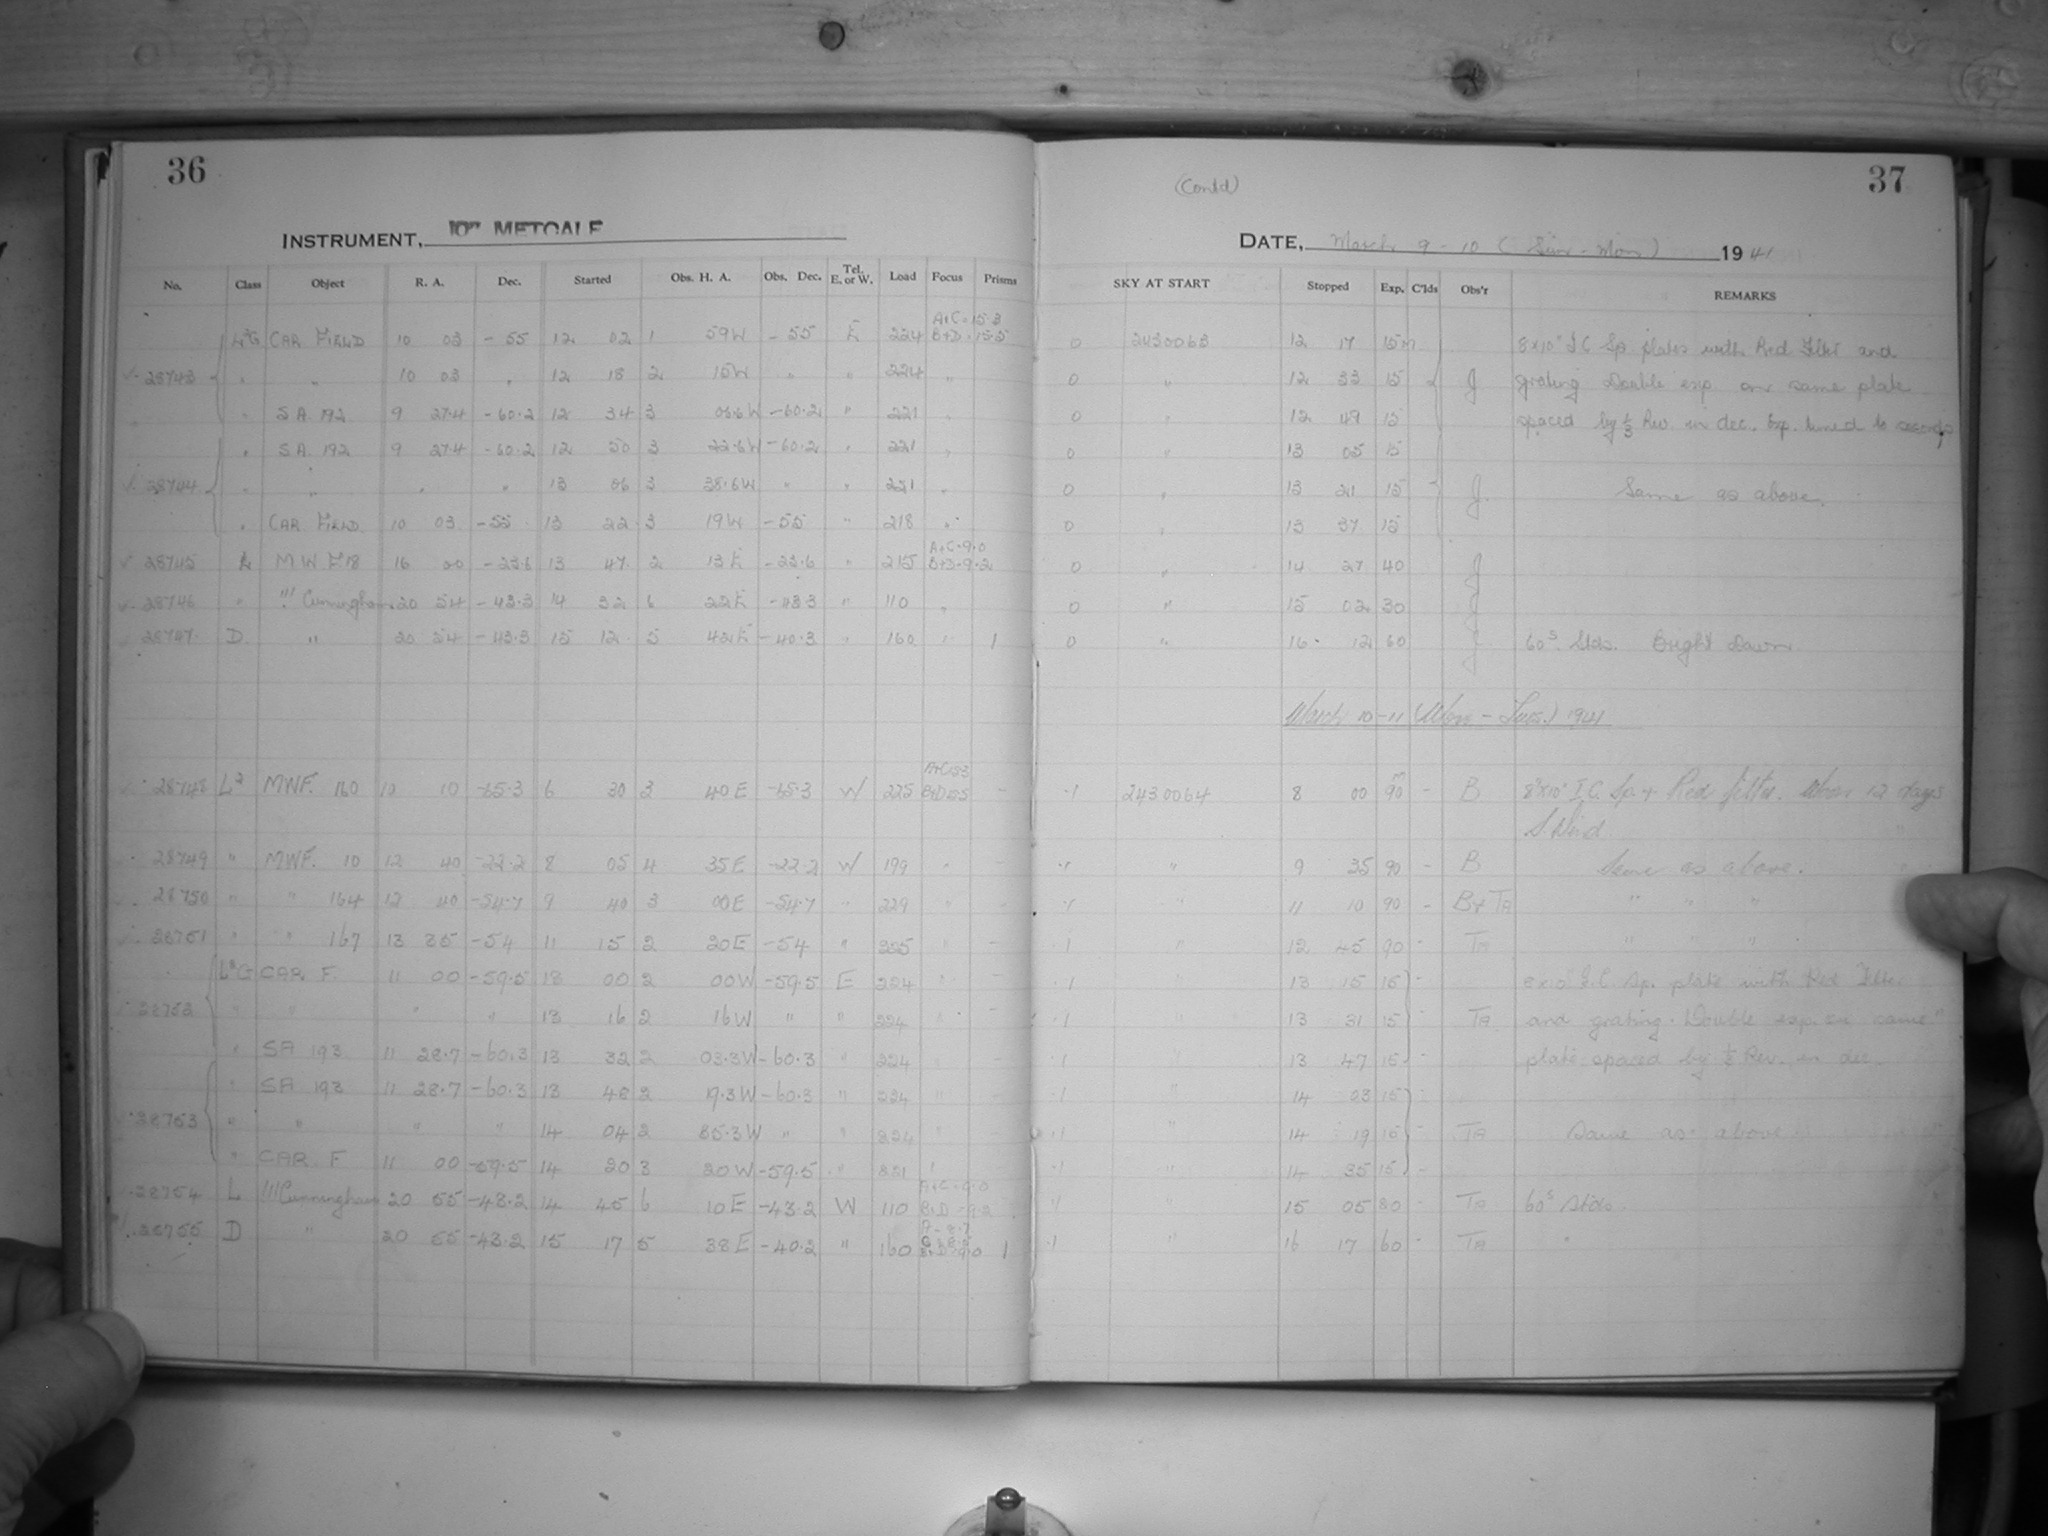 36
(Contd)
37
INSTRUMENT, 10" METCALF
DATE, March 9 - 10 (Sun - Mon) 1941
No. Class Object R. A. Dec. Started Obs. H. A. Obs. Dec. Tel. E. or W. Load Focus Prisms SKY AT START Stopped Exp. C'lds Obs'r REMARKS
A+C=15.3
CAR FIELD 10 03 -55 12 02 1 59W -55 E 224 B+D=15.5 0 2430063 12 17 15m 8x10" I C Sp. plates with Red Filter and
28743 " " 10 03 " 12 18 2 15W " " 224 " 0 " 12 33 15 J grating Double exp on same plate
" SA 192 9 27.4 -60.2 12 34 3 06.6W -60.2 " 221 " 0 " 12 49 15 spaced by 1/3 Rev. in dec. Exp. timed to seconds
" SA 192 9 27.4 -60.2 12 50 3 22.6W -60.2 " 221 " 0 " 13 05 15
28744 " " " " 13 06 3 38.6W " " 221 " 0 " 13 21 15 J. Same as above.
" CAR FIELD 10 03 -55 13 22 3 19W -55 " 218 " 0 " 13 37 15
A+C=9.0
28745 MWF 18 16 20 -23.6 13 47 2 13E -23.6 " 215 B+D=9.2 0 " 14 27 40 J
28746 " !!! Cunningham 20 54 -43.3 14 32 6 22E -43.3 " 110 " 0 " 15 02 30 J
28747 D " 20 54 -43.3 15 12 5 42E -40.3 " 160 " 1 0 " 16 12 60 J 60s. Stds. Bright Dawn
March 10-11 (Mon - Tues.) 1941
28748 L2 MWF. 160 10 10 -65.3 6 30 3 40E -65.3 W 225 - -1 2430064 8 00 90m - B 8"x10" I.C. Sp. + Red filter. Moon 12 days
S. Wind.
28749 " MWF. 10 12 40 -22.2 8 05 4 35E -22.2 W 199 " - " 9 35 90 - B Same as above.
28750 " " 164 12 40 -54.7 9 40 3 00E -54.7 " 229 " - " 11 10 90 - B+TA " " "
28751 " " 167 13 35 -54 11 15 2 20E -54 " 225 " - 1 " 12 45 90 - TA " " "
CAR. F. 11 00 -59.5 13 00 2 00W -59.5 E 224 " - 1 " 13 15 15 8x10" I.C. Sp. plate with Red Filter
" " " " 13 16 2 16W " " 224 " - 1 " 13 31 15 TA and grating. Double exp. on same
" SA 193 11 28.7 -60.3 13 32 2 03.3W -60.3 " 224 " - 1 " 13 47 15 plate spaced by 1/3 Rev. in dec.
" SA 193 11 28.7 -60.3 13 48 2 19.3W -60.3 " 224 " - 1 " 14 03 15
28753 " " " " 14 04 2 35.3W " " 224 " - 1 " 14 19 15 TA Same as above
" CAR. F 11 00 -59.5 14 20 3 20W -59.5 " 221 " - 1 " 14 35 15
A+C=9.0
28754 L !!!Cunningham 20 55 -43.2 14 45 6 10E -43.2 W 110 B+D=9.2 " 15 05 TA 60s Stds.
28755 D " 20 55 -43.2 15 17 5 38E -40.2 " 160 B+D=9.0 1 1 " 16 17 60 - TA "